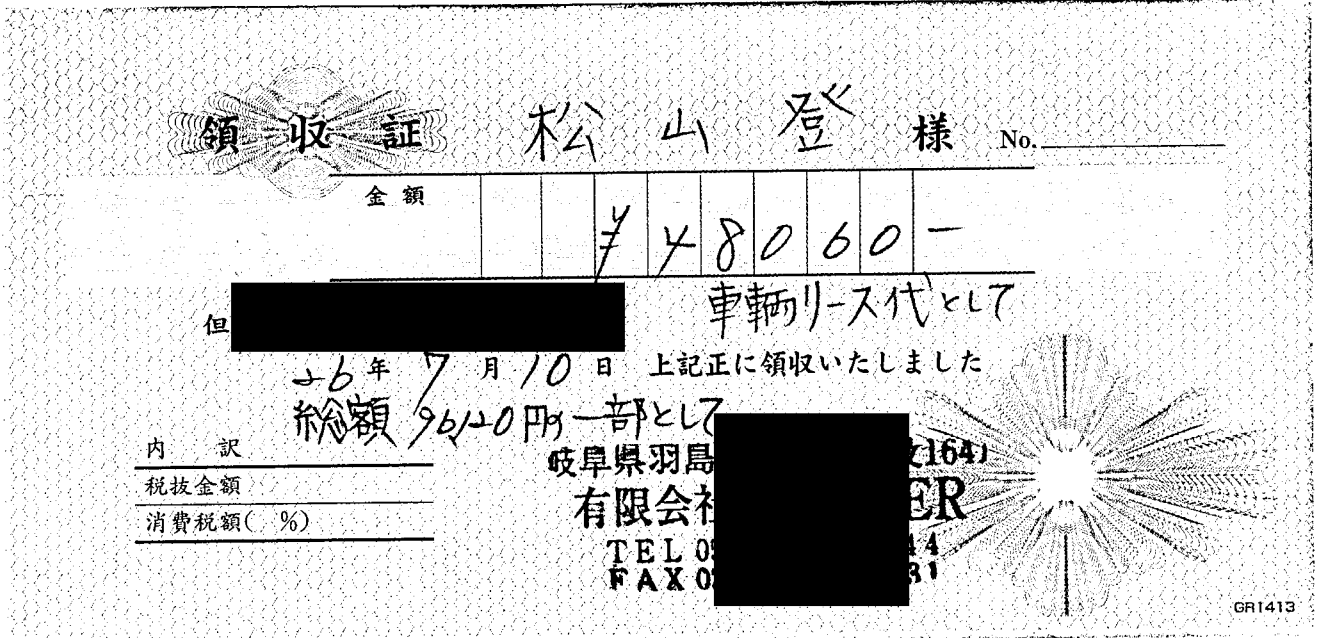 領収証 松山登 様 No.
金額 ¥48060-
但 車輌リース代として
26年7月10日 上記正に領収いたしました
総額 96,120円の一部として
内訳
税抜金額
消費税額( %)
岐阜県羽島 164)
有限会社 ER
TEL 0 44
FAX 0 31
GR1413